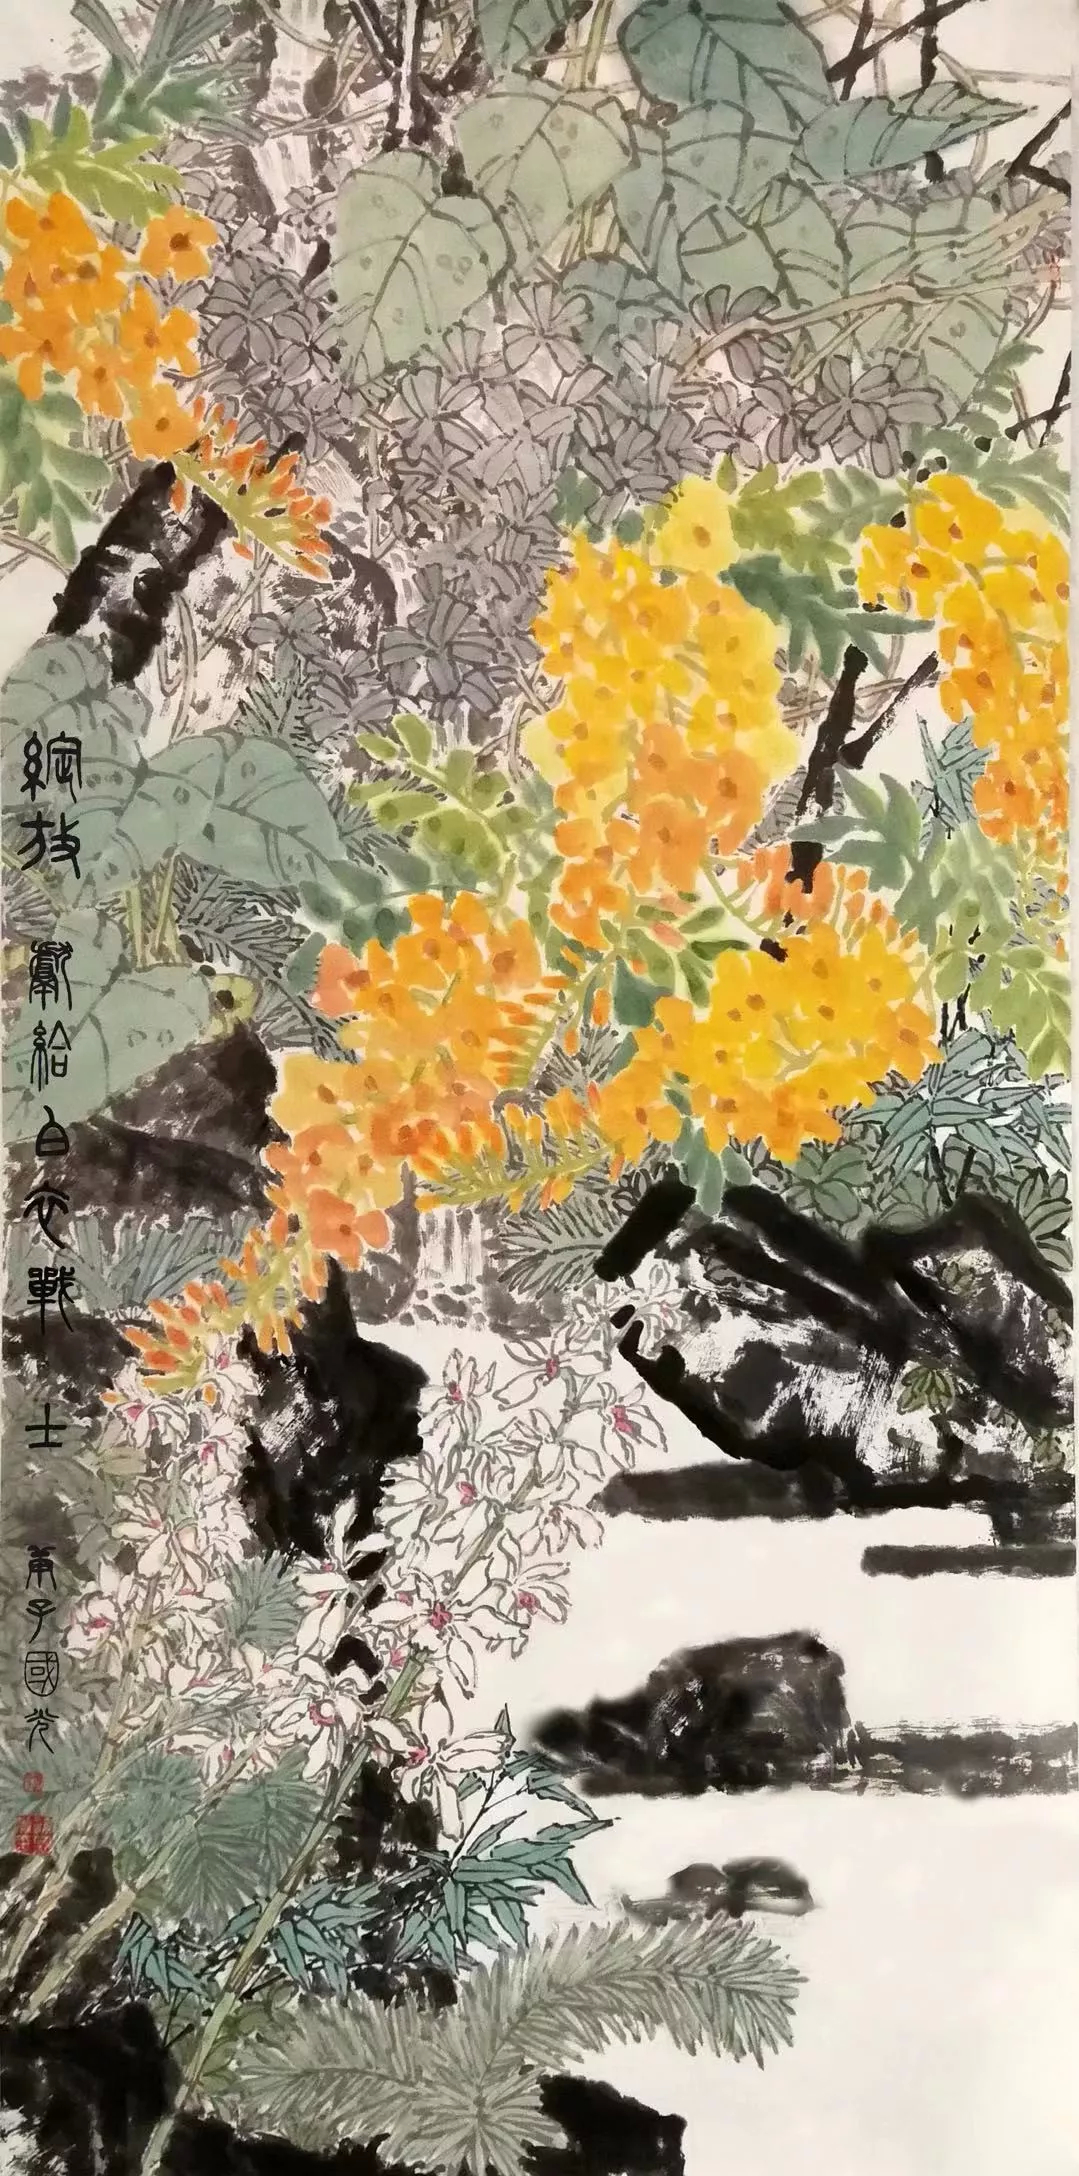 綻放
獻給白衣戰士
庚子國光